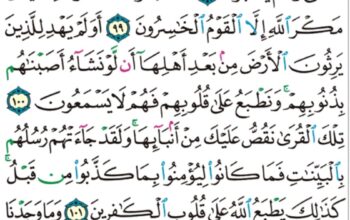 مَكْرَ ٱللَّهِ إِلَّا ٱلْقَوْمُ ٱلْخَٰسِرُونَ ٩٩ أَوَلَمْ يَهْدِ لِلَّذِينَ
يَرِثُونَ ٱلْأَرْضَ مِنۢ بَعْدِ أَهْلِهَآ أَن لَّوْ نَشَآءُ أَصَبْنَٰهُم
بِذُنُوبِهِمْ ۚ وَنَطْبَعُ عَلَىٰ قُلُوبِهِمْ فَهُمْ لَا يَسْمَعُونَ ١٠٠
تِلْكَ ٱلْقُرَىٰ نَقُصُّ عَلَيْكَ مِنْ أَنۢبَآئِهَا ۚ وَلَقَدْ جَآءَتْهُمْ رُسُلُهُم
بِٱلْبَيِّنَٰتِ فَمَا كَانُوا۟ لِيُؤْمِنُوا۟ بِمَا كَذَّبُوا۟ مِن قَبْلُ ۚ
كَذَٰلِكَ يَطْبَعُ ٱللَّهُ عَلَىٰ قُلُوبِ ٱلْكَٰفِرِينَ ١٠١ وَمَا وَجَدْنَا